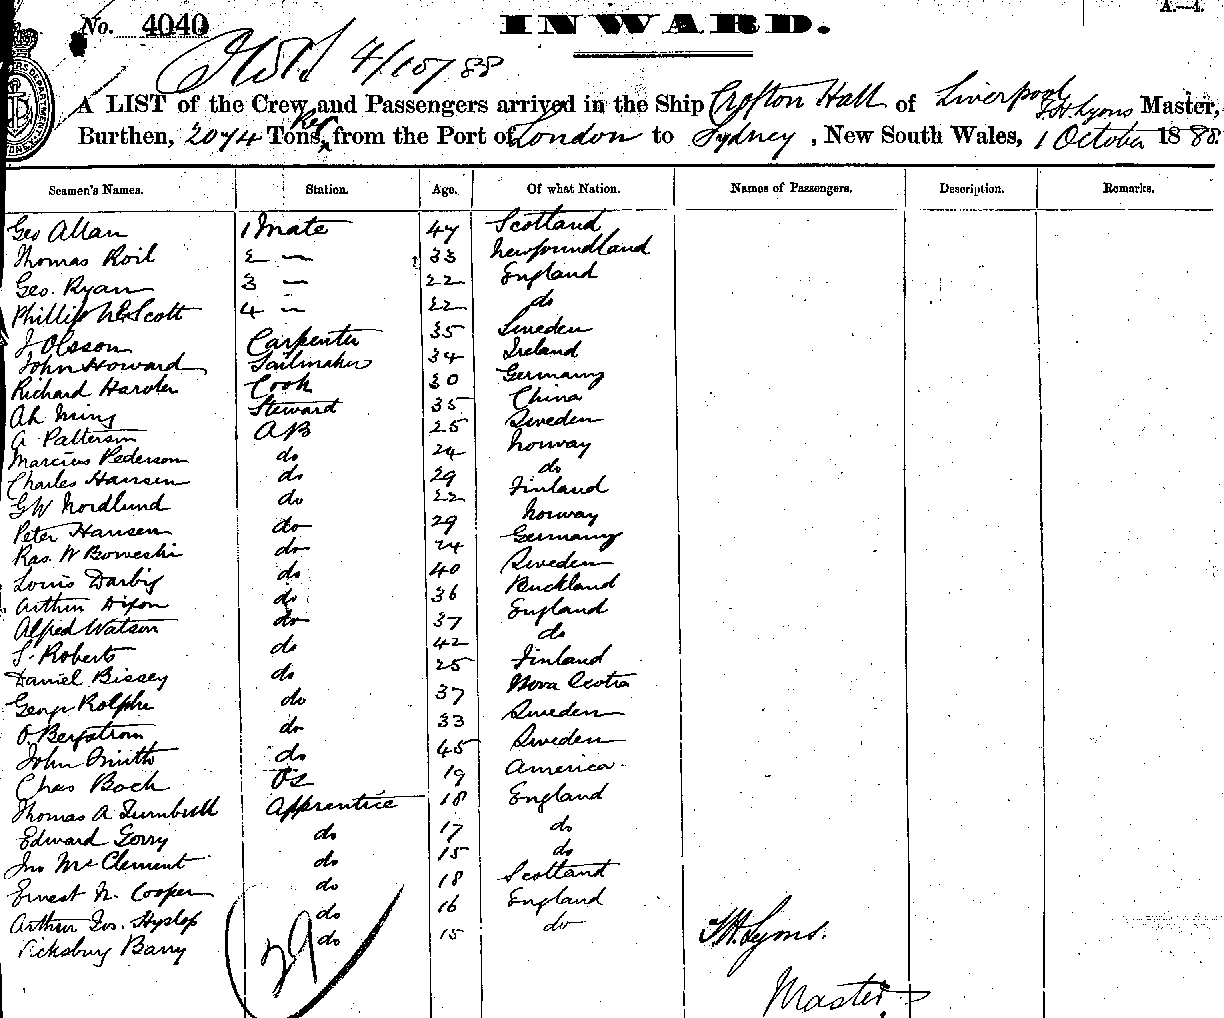 No. 4040 INWARD. A.—4.
4/10/88
A LIST of the Crew and Passengers arrived in the Ship Crofton Hall of Liverpool, T.H. Lyons Master,
Burthen, 2074 Tons, from the Port of London to Sydney, New South Wales, 1 October 1888.
Seamen's Names. Station. Age. Of what Nation. Names of Passengers. Description. Remarks.
Geo Allan 1 Mate 47 Scotland
Thomas Roil 2 — 33 Newfoundland
Geo. Ryan 3 — 22 England
Phillip McScott 4 — 22 do
J Olsson Carpenter 35 Sweden
John Howard Sailmaker 34 Ireland
Richard Harder Cook 30 Germany
Ah Ming Steward 35 China
A Patterson AB 25 Sweden
Marcius Pederson do 24 Norway
Charles Hansen do 29 do
GW Nordlund do 22 Finland
Peter Hansen do 29 Norway
Ras. W Boweski do 24 Germany
Louis Darbig do 40 Sweden
Arthur Dixon do 36 Buckland
Alfred Watson do 37 England
S. Roberts do 42 do
Daniel Bissey do 25 Finland
George Rolphe do 37 Nova Scotia
O Bergstrom do 33 Sweden
John Smith do 45 Sweden
Chas Bach OS 19 America
Thomas A Turnbull Apprentice 18 England
Edward Gorry do 17 do
Jno McClement do 15 do
Ernest N. Cooper do 18 Scotland
Arthur Jos. Hyslop do 16 England
Vicksbury Barry do 15 do
29
T.H. Lyons.
Master